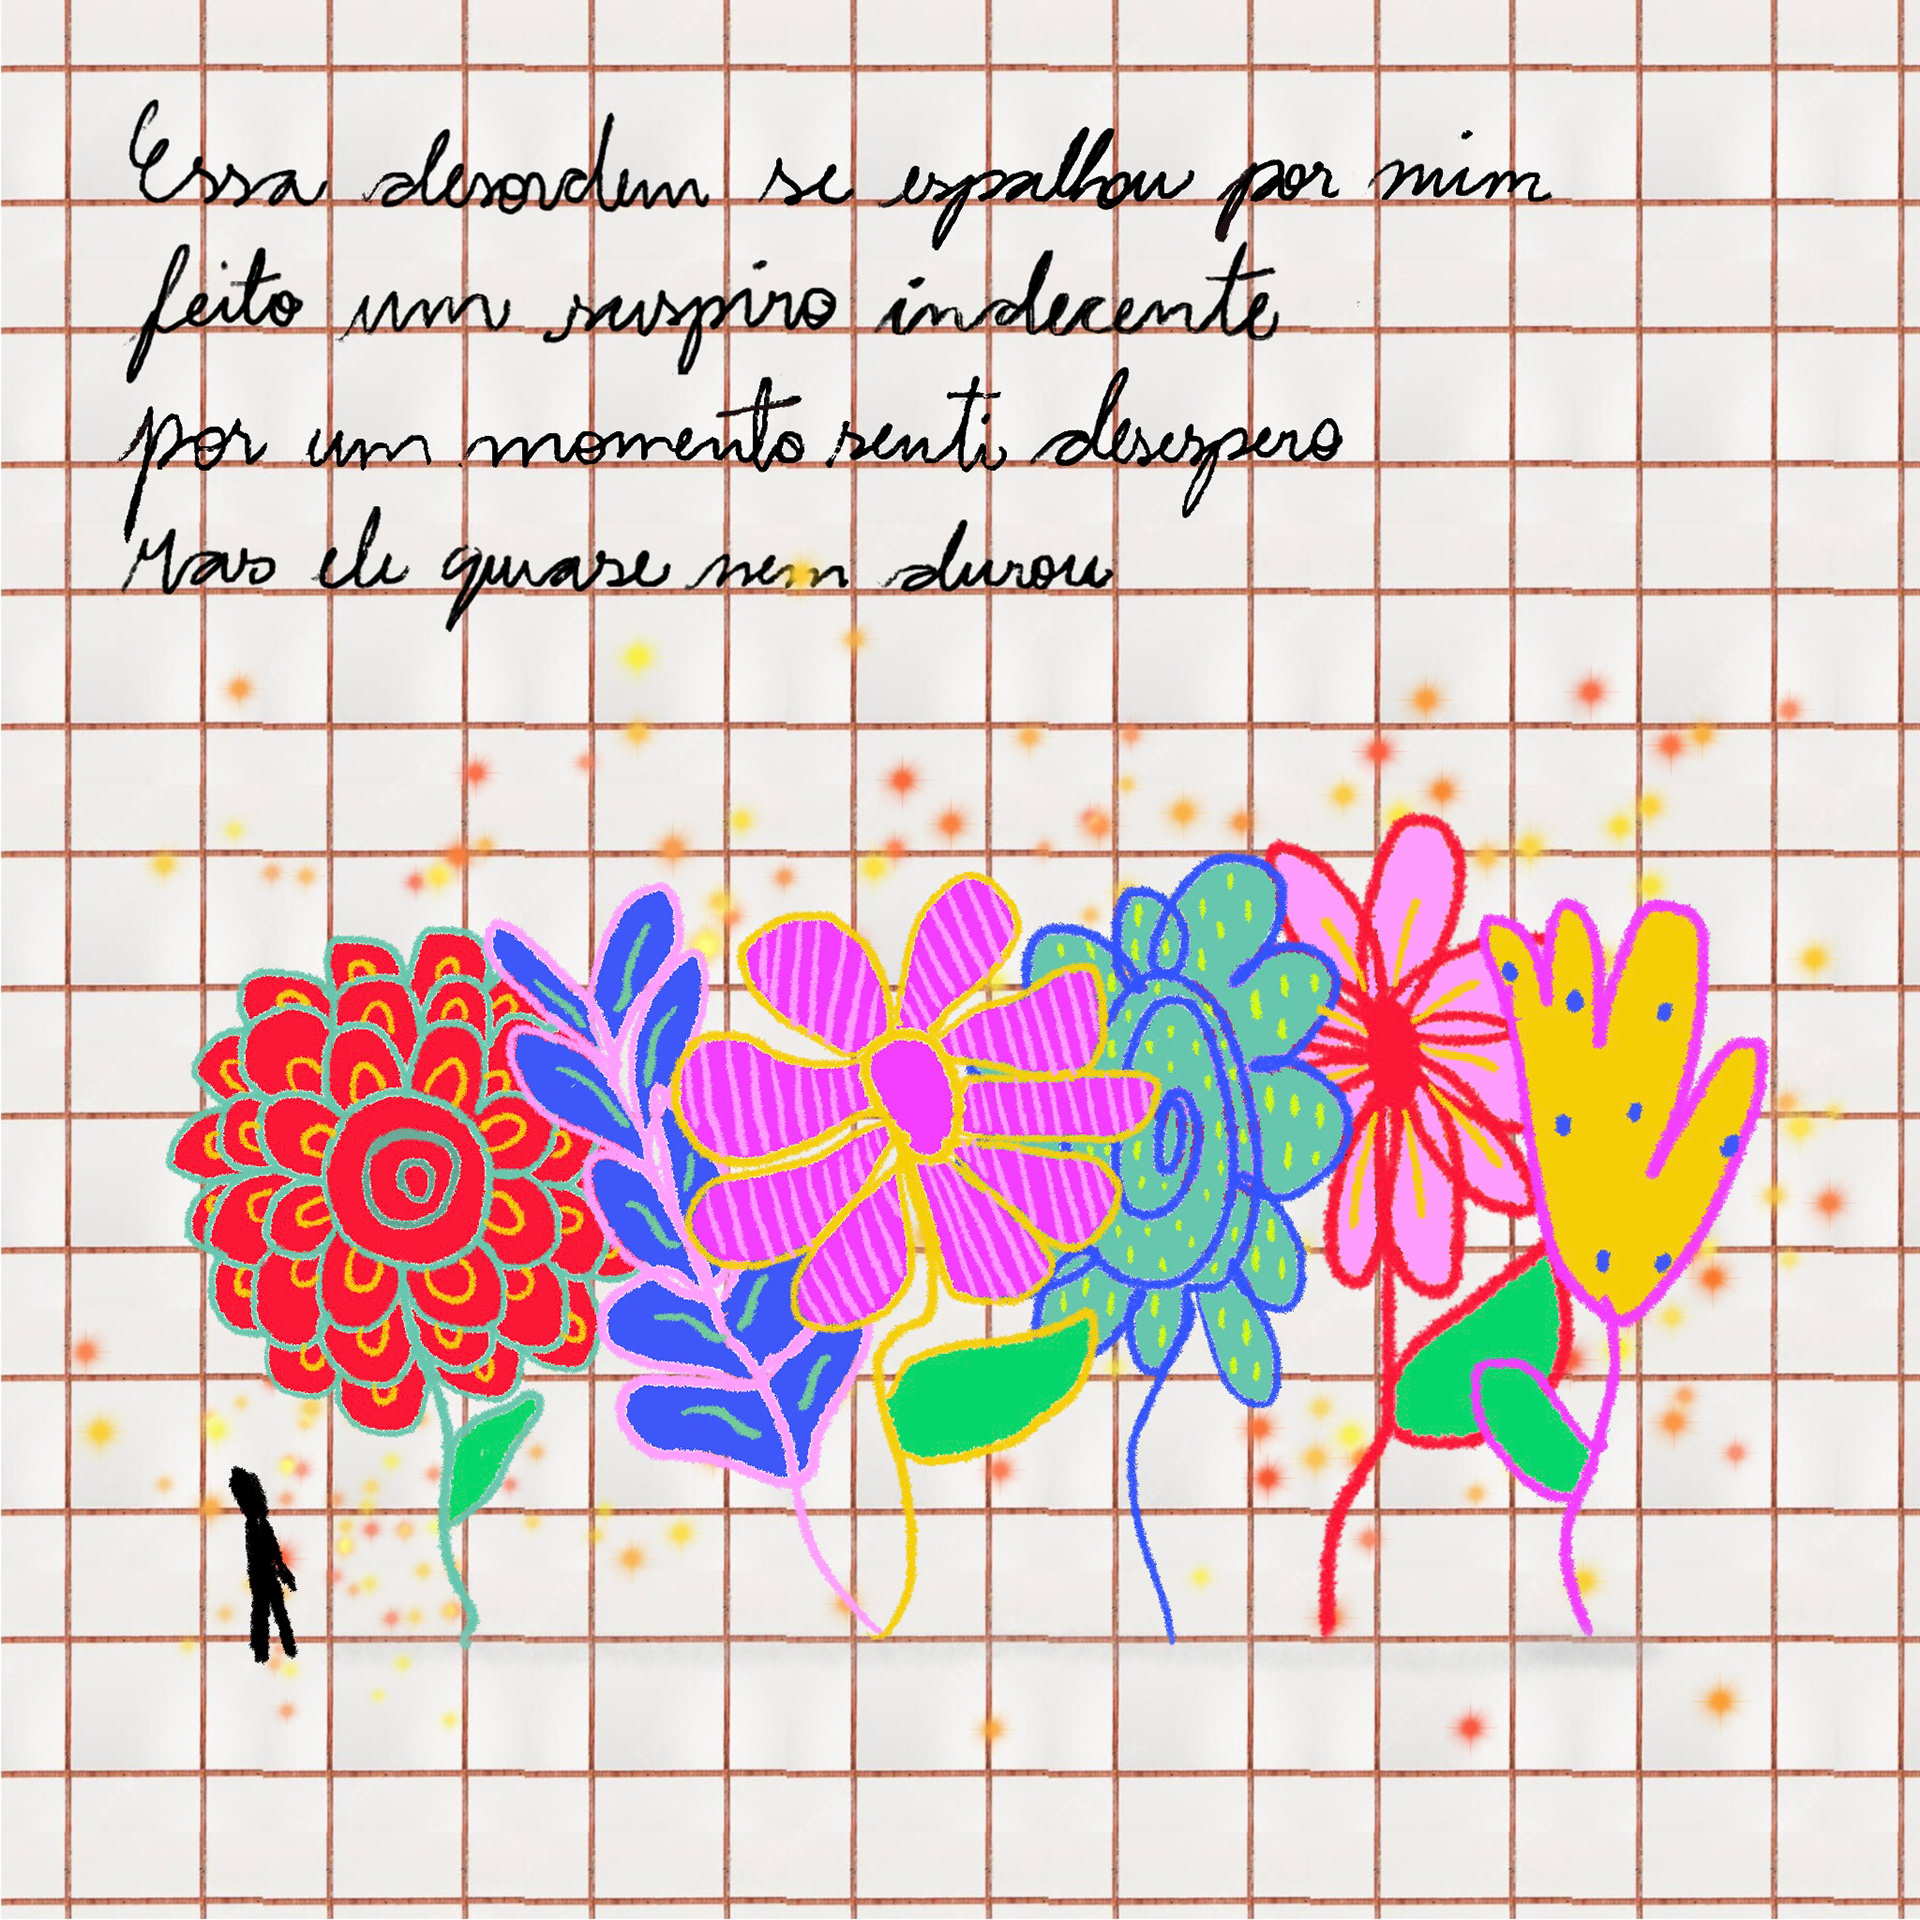 Essa desordem se espalhou por mim
feito um suspiro indecente
por um momento senti desespero
Mas ele quase nem durou